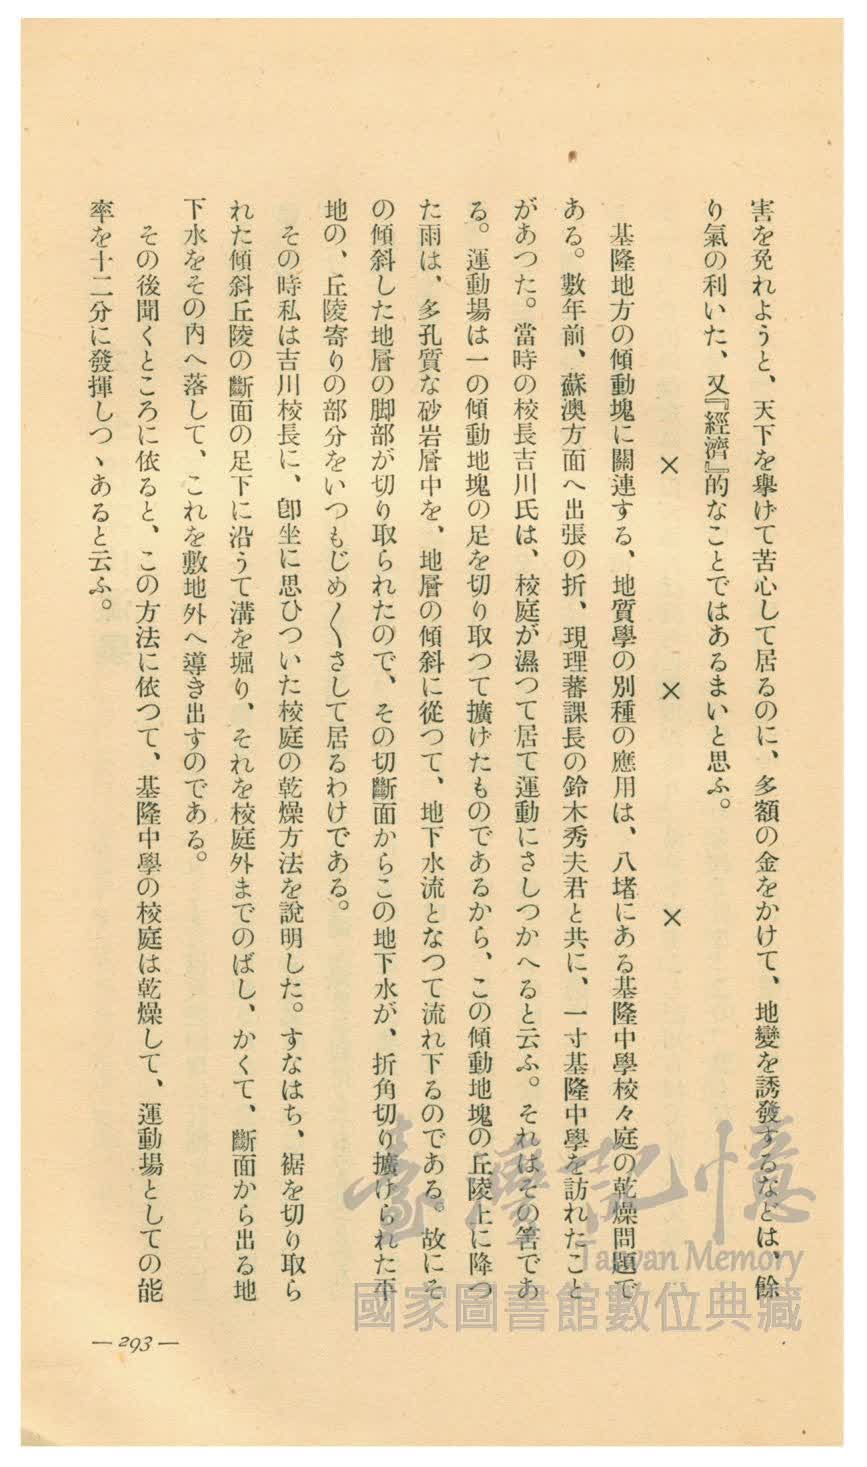 害を免れようと、天下を擧げて苦心して居るのに、多額の金をかけて、地變を誘發するなどは、餘
り氣の利いた、又『經濟』的なことではあるまいと思ふ。
× × ×
基隆地方の傾動塊に關連する、地質學の別種の應用は、八堵にある基隆中學校々庭の乾燥問題で
ある。數年前、蘇澳方面へ出張の折、現理蕃課長の鈴木秀夫君と共に、一寸基隆中學を訪れたこと
があつた。當時の校長吉川氏は、校庭が濕つて居て運動にさしつかへると云ふ。それはその筈であ
る。運動場は一の傾動地塊の足を切り取つて擴げたものであるから、この傾動地塊の丘陵上に降つ
た雨は、多孔質な砂岩層中を、地層の傾斜に從つて、地下水流となつて流れ下るのである。故にそ
の傾斜した地層の脚部が切り取られたので、その切斷面からこの地下水が、折角切り擴げられた平
地の、丘陵寄りの部分をいつもじめ〱さして居るわけである。
その時私は吉川校長に、卽坐に思ひついた校庭の乾燥方法を說明した。すなはち、裾を切り取ら
れた傾斜丘陵の斷面の足下に沿うて溝を堀り、それを校庭外までのばし、かくて、斷面から出る地
下水をその內へ落して、これを敷地外へ導き出すのである。
その後聞くところに依ると、この方法に依つて、基隆中學の校庭は乾燥して、運動場としての能
率を十二分に發揮しつヽあると云ふ。
— 293 —
臺灣記憶
Taiwan Memory
國家圖書館數位典藏